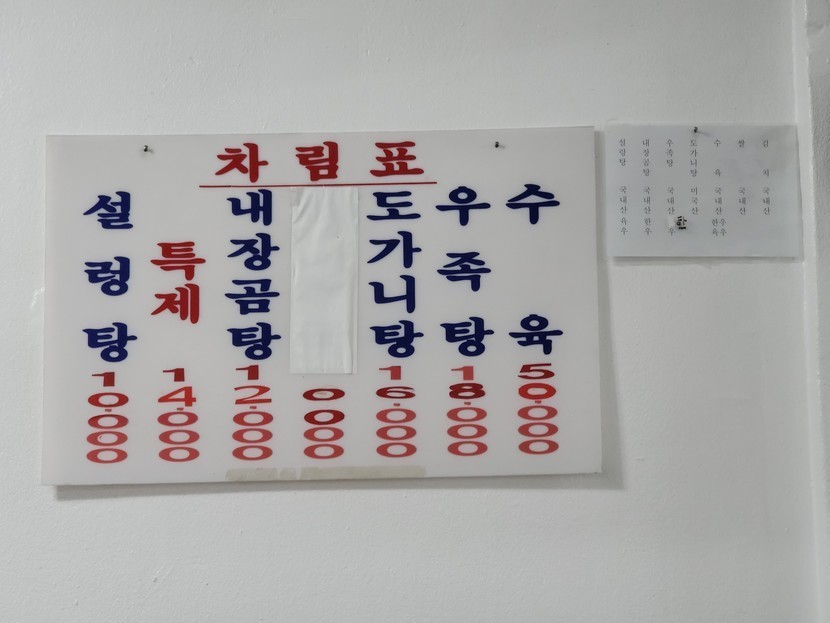 차림표
설렁탕 10.000
특제 14.000
내장곰탕 12.000
0 0 0 0
도가니탕 16.000
우족탕 18.000
수육 50.000
설렁탕 국내산육우
내장곰탕 국내산한우
우족탕 국내산
도가니탕 미국산
수육 국내산 한우 육우
쌀 국내산
국내산